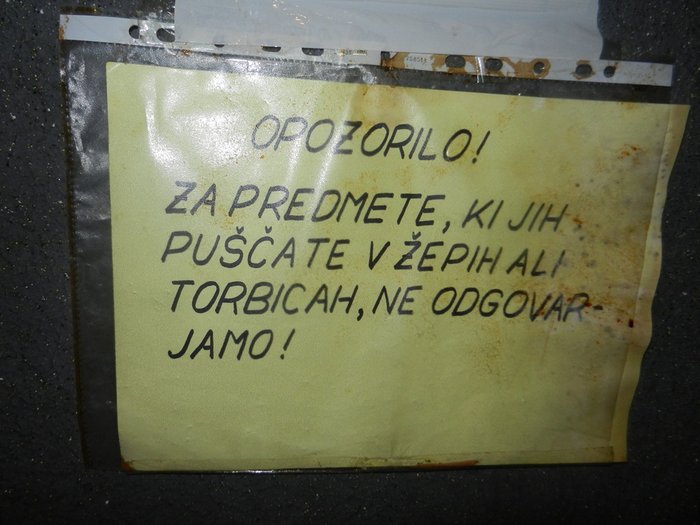 OPOZORILO!
ZA PREDMETE, KI JIH
PUŠČATE V ŽEPIH ALI
TORBICAH, NE ODGOVAR-
JAMO!